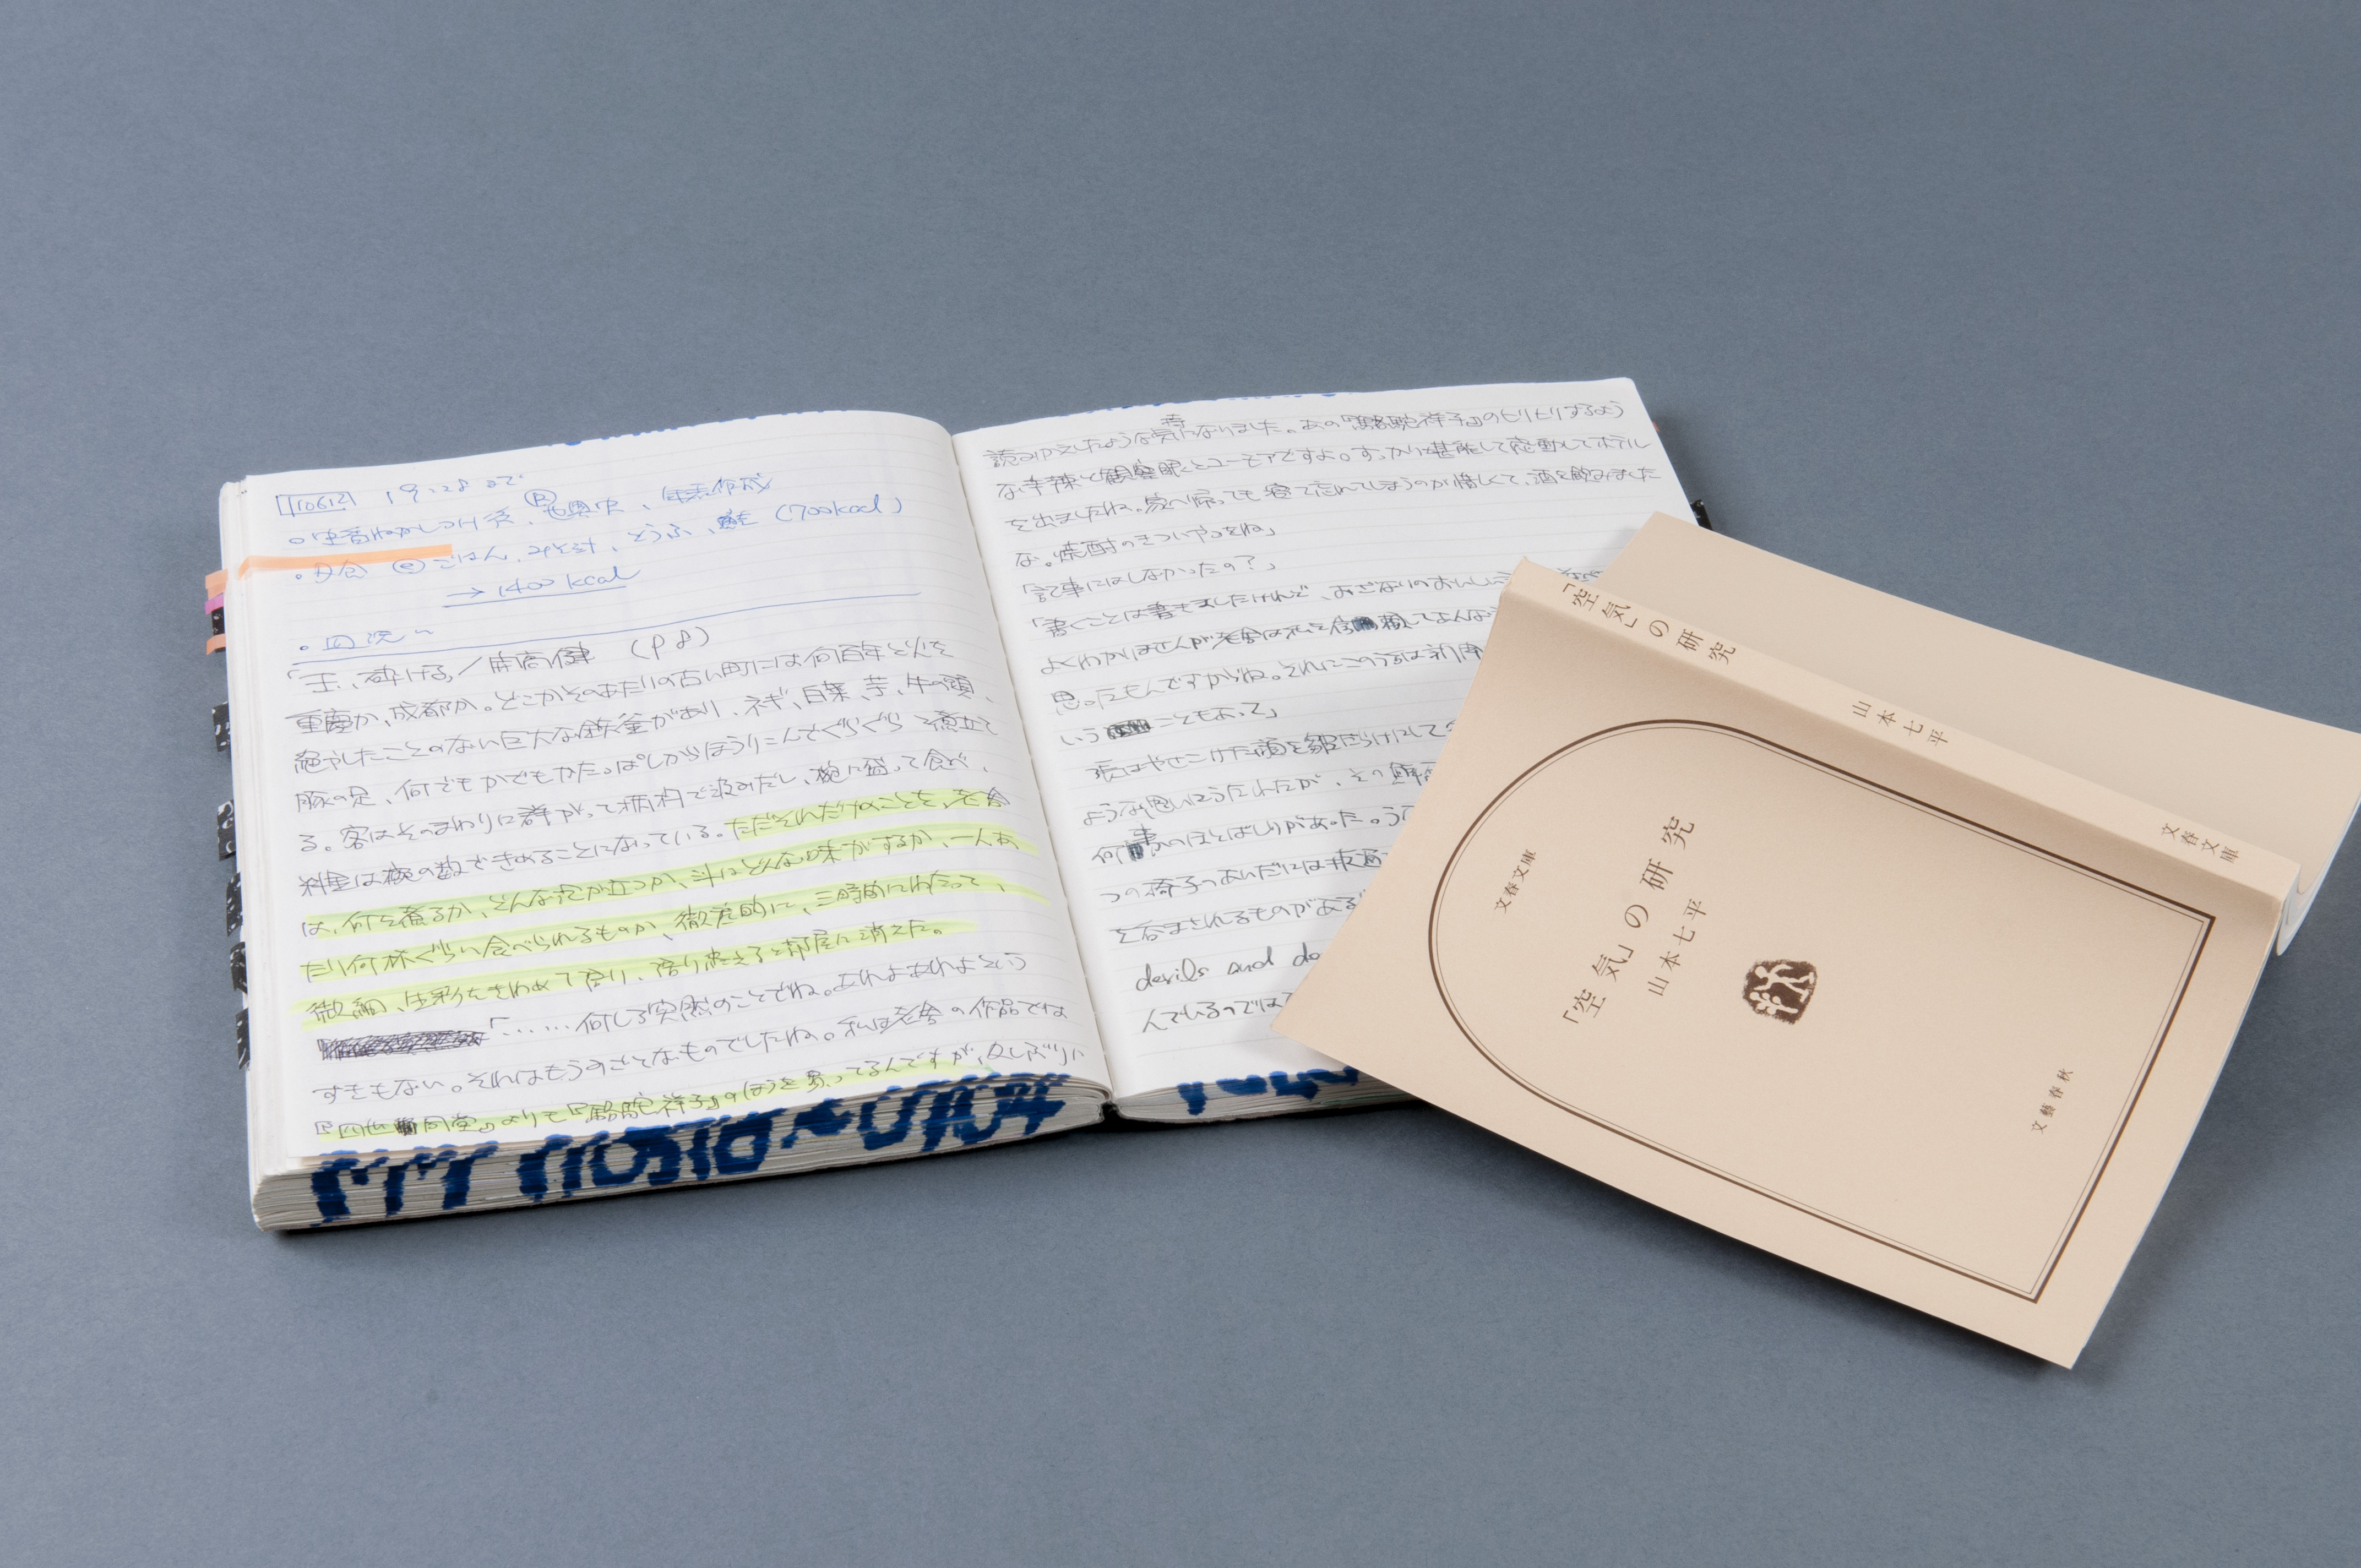 [110612] 19:28まで
・夕食 ごはん、みそ汁、とうふ、鮭 (700kcal)
→ 1400 kcal
「玉、砕ける/開高健 (P8)
重慶か、成都か。どこかそのあたりの古い町には何百年と火を
絶やしたことのない巨大な鉄釜があり、ネギ、白菜、芋、牛の頭、
豚の足、何でもかでもかたっぱしからほうりこんでぐらぐら煮立て
る。客はそのまわりに群がって柄杓で汲みだし、椀に盛って食べ、
料金は椀の数できめることになっている。ただそれだけのことを、老舎
は、何を煮るか、どんな泡が立つか、汁はどんな味がするか、一人あ
たり何杯ぐらい食べられるものか、徹底的に、三時間にわたって、
微細、生彩をきわめて語り、語り終えると部屋に消えた。
「……何しろ突然のことでね。あれよあれよという
すきもない。それはもうみごとなものでしたね。私は老舎の作品では
『四世同堂』よりも『駱駝祥子』のほうを買ってるんですが、久しぶりに
読みかえしたような気持になりました。あの『駱駝祥子』のヒリヒリするよう
な辛辣と観察眼とユーモアですよ。すっかり堪能して感動してホテル
を出ましたね。家へ帰っても寝て忘れてしまうのが惜しくて、酒を飲みました
な。焼酎のきついやつをね」
「記事にはしなかったの?」
「書くことは書きましたけれど、おざなりのおいしい
よくわかりませんが老舎は私を信頼してよんな
思ったもんですからね。それにこのうるは新
いう こともあって」
張はやせこけた頬を皺だらけにして
ような思いにうたれたが、その
何事かのほとばしりがあった。う
つの椅子のあいだには
を呑まされるものがある
devils and
んでいるのでは
「空気」の研究 山本七平 文春文庫
文春文庫
「空気」の研究
山本七平
文藝春秋